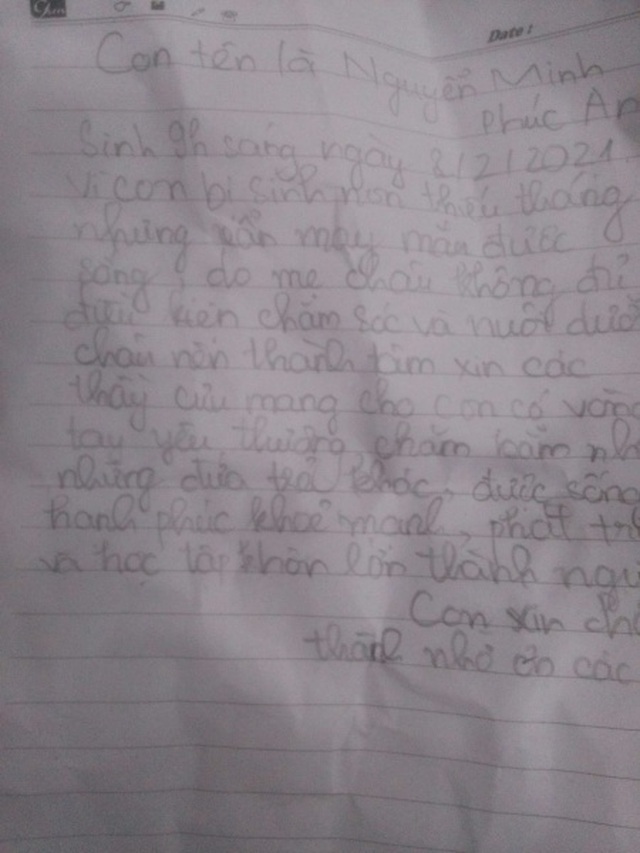 Date:
Con tên là Nguyễn Minh
Phúc An
Sinh 9h sáng ngày 8/2/2021
Vì con bị sinh non thiếu tháng
nhưng vẫn may mắn được
sống, do mẹ cháu không đủ
điều kiện chăm sóc và nuôi
cháu nên thành tâm xin các
thầy cưu mang cho con có
tay yêu thương, chăm
những đứa trẻ khác, được sống
hạnh phúc khoẻ mạnh, phát
và học tập khôn lớn thành
Con xin
thành nhớ ơn các